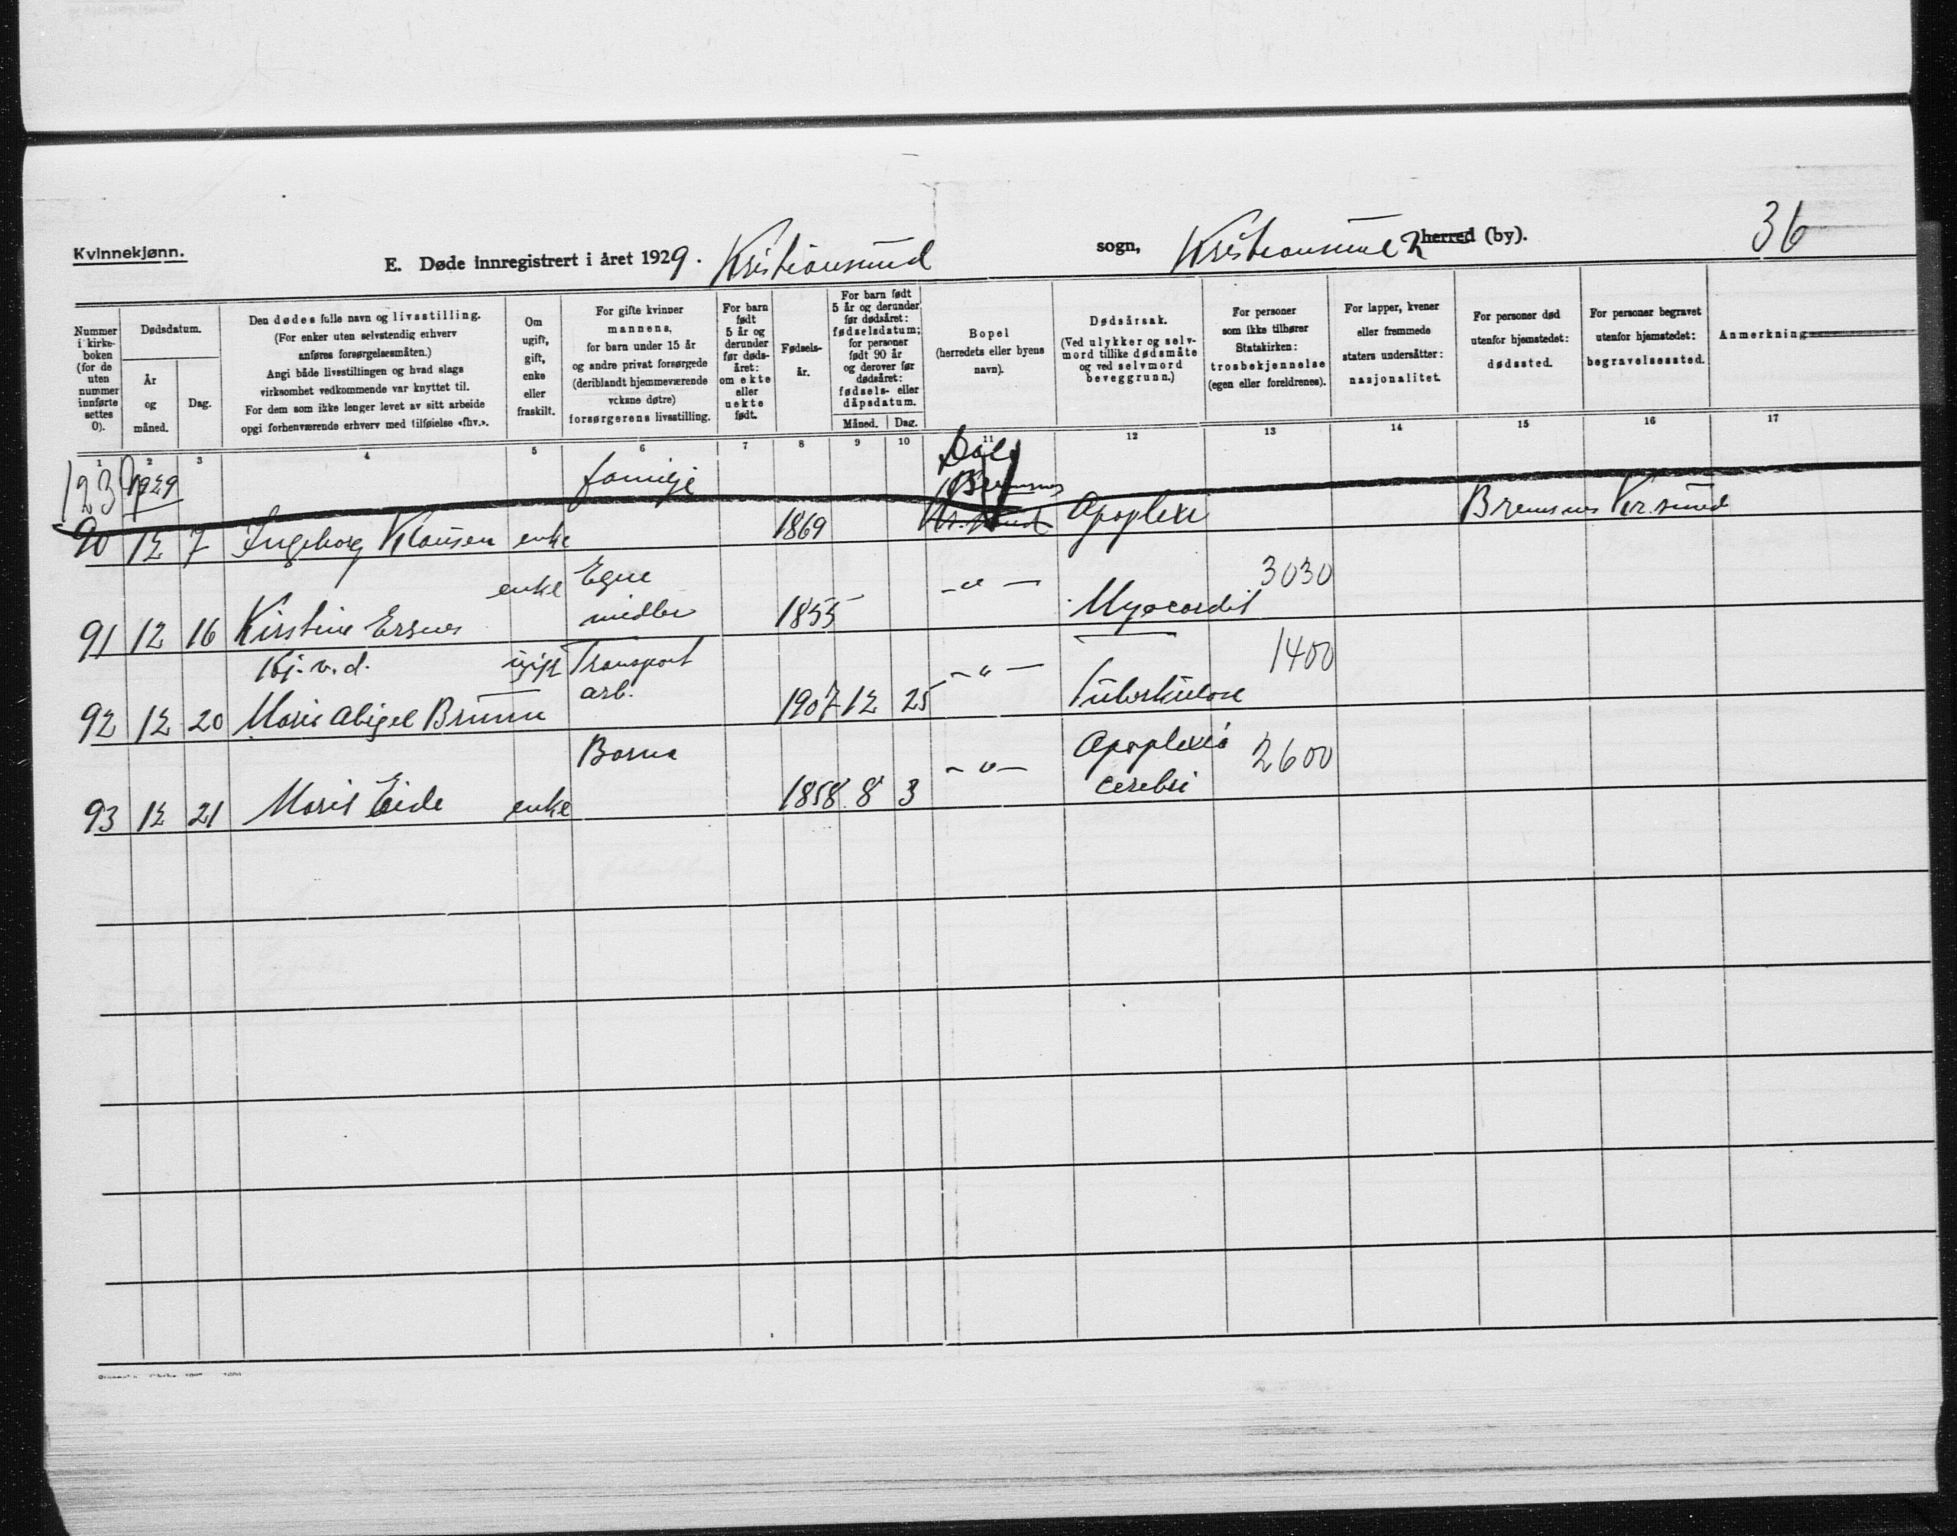 Kvinnekjønn.
E. Døde innregistrert i året 1929. Kristiansund sogn, Kristiansund herred (by).
36
Nummer i kirkeboken (for de uten nummer innførte settes 0).
Dødsdatum.
År og måned.
Dag.
Den dødes fulle navn og livsstilling.
(For enker uten selvstendig erhverv anføres forsørgelsesmåten.)
Angi både livsstillingen og hvad slags virksomhet vedkommende var knyttet til.
For dem som ikke lenger levet av sitt arbeide opgi forhenværende erhverv med tilføielse «fhv.».
Om ugift, gift, enke eller fraskilt.
For gifte kvinner mannens, for barn under 15 år og andre privat forsørgede (deriblandt hjemmeværende voksne døtre) forsørgerens livsstilling.
For barn født 5 år og derunder før dødsåret: om ekte eller uekte født.
Fødselsår.
For barn født 5 år og derunder før dødsåret: fødselsdatum; for personer født 90 år og derover før dødsåret: fødsels- eller dåpsdatum.
Måned.
Dag.
Bopel (herredets eller byens navn).
Dødsårsak.
(Ved ulykker og selvmord tillike dødsmåte og ved selvmord beveggrunn.)
For personer som ikke tilhører Statskirken: trosbekjennelse (egen eller foreldrenes).
For lapper, kvener eller fremmede staters undersåtter: nasjonalitet.
For personer død utenfor hjemstedet: dødssted.
For personer begravet utenfor hjemstedet: begravelsessted.
Anmerkning
1 2 3 4 5 6 7 8 9 10 11 12 13 14 15 16 17
123 1929 familje
Bremsnes
90 12 7 Ingeborg Klausen enke 1869 Kr.sund Apoplexi Bremsnes Kr.sund
enke Egne midler -"- 3030
91 12 16 Kirstine Ersnes 1855 Myocardit
Kj.v.d. ugift Transport arb. -"- 1400
92 12 20 Marie Abigel Brunn 1907 12 25 Tuberkulose
Barna -"- Apoplexia 2600
93 12 21 Marit Eide enke 1858 8 3 cerebri